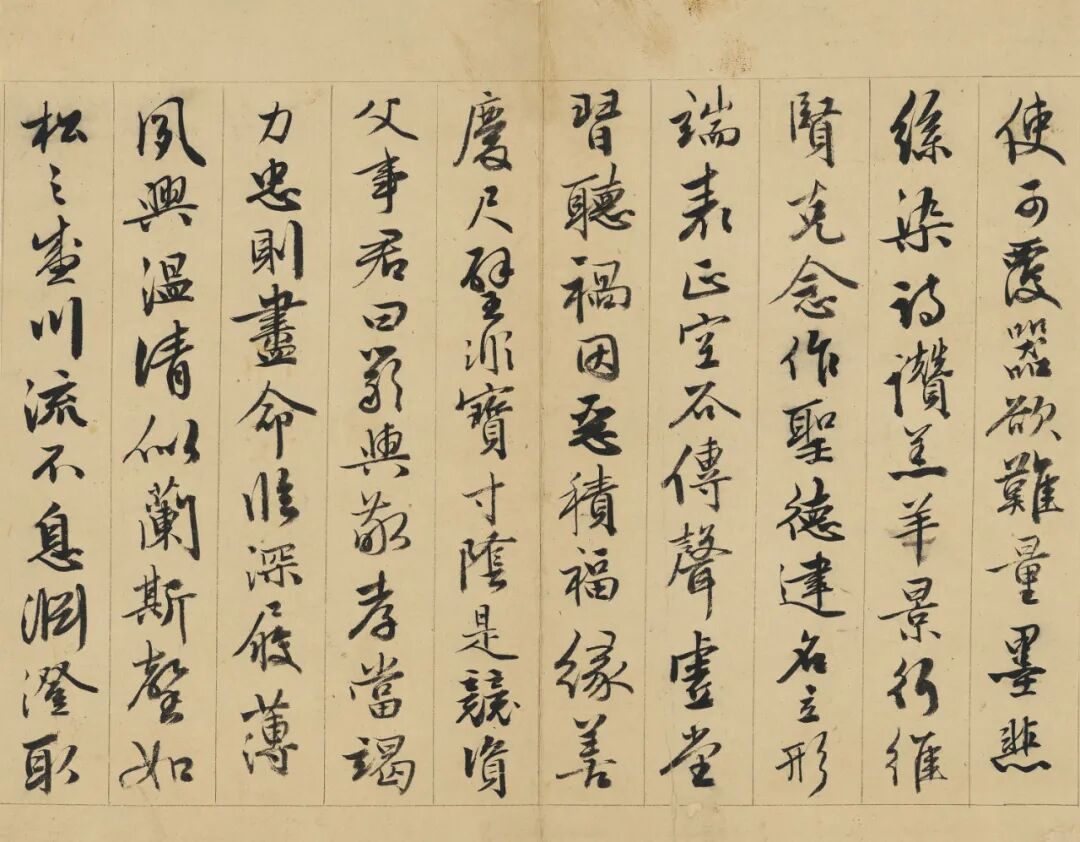 使可覆器欲難量墨悲
絲染詩讚羔羊景行維
賢克念作聖德建名立形
端表正空谷傳聲虛堂
習聽禍因惡積福緣善
慶尺璧非寶寸陰是競資
父事君曰嚴與敬孝當竭
力忠則盡命臨深履薄
夙興溫清似蘭斯馨如
松之盛川流不息淵澄取